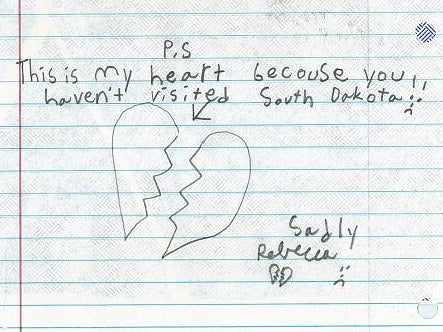 P.S
This is my heart becouse you!!
haven't visited South Dakota
Sadly
Rebecca